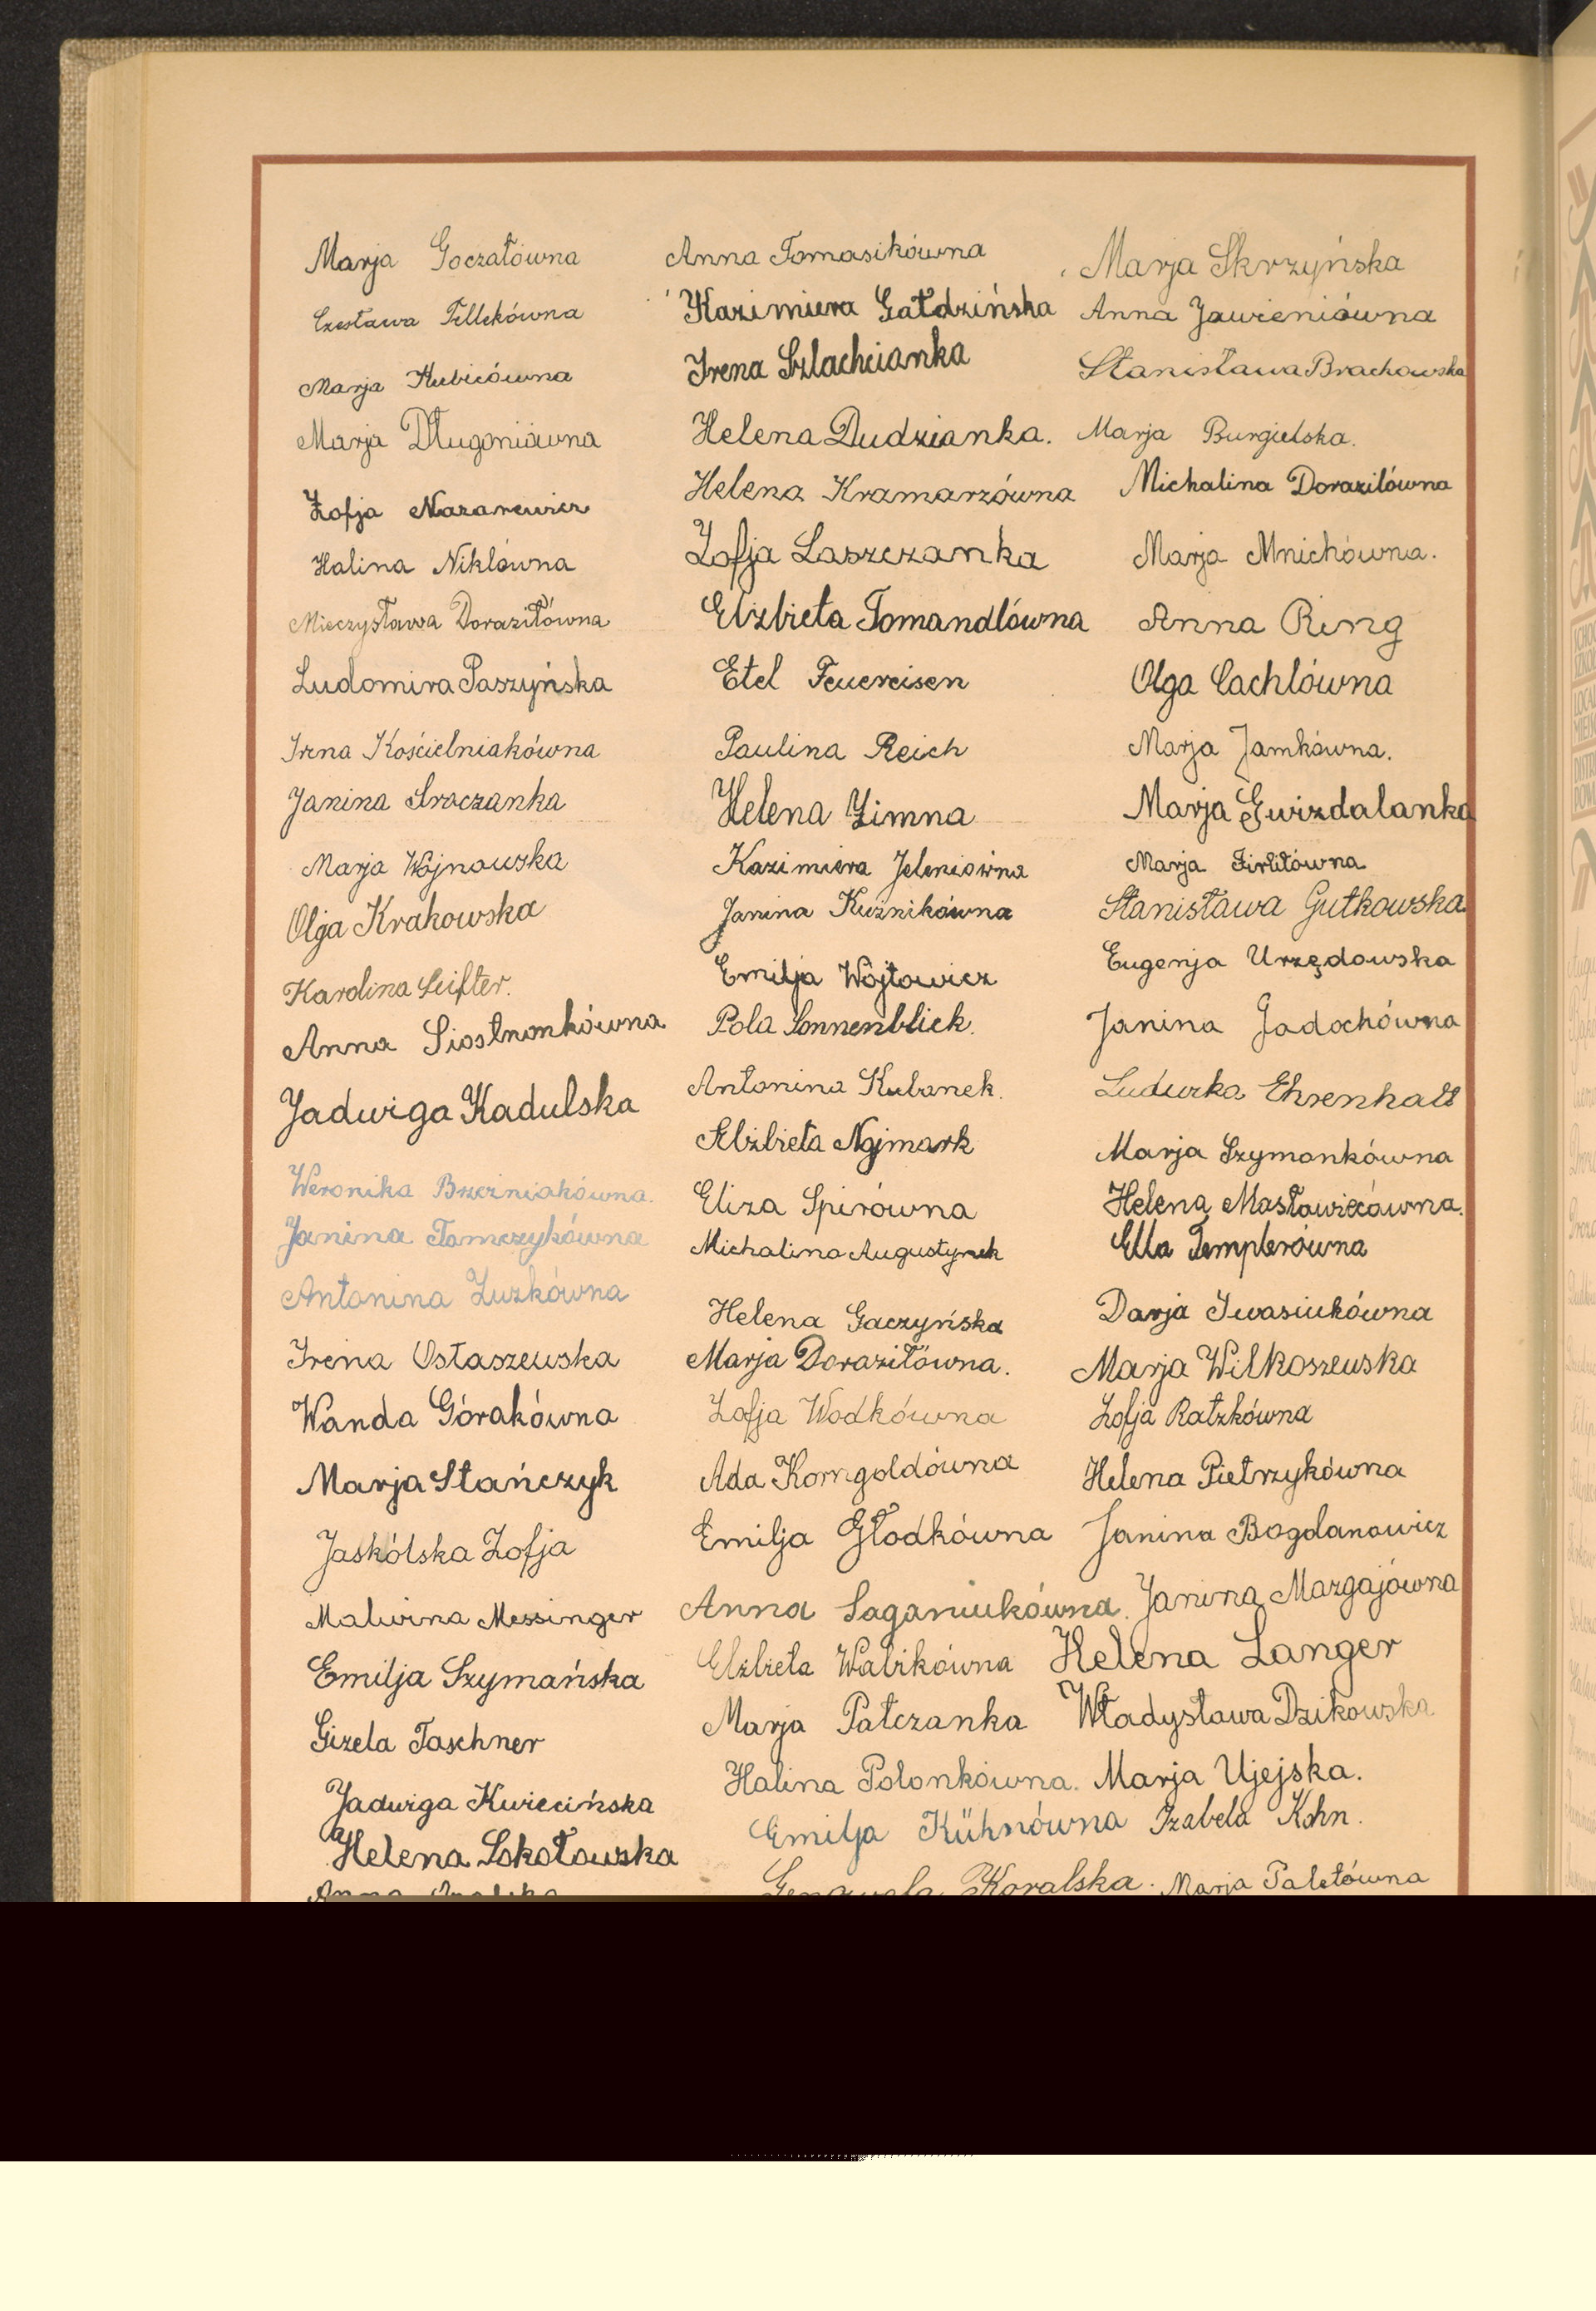 Marja Goczałówna
Czesława Tellekówna
Marja Kubicówna
Marja Długoniówna
Zofja Nazarewicz
Halina Niklówna
Mieczysława Doraziłówna
Ludomira Paszyńska
Irena Kościelniakówna
Janina Sraczanka
Marja Wojnowska
Olga Krakowska
Karolina Seifter.
Anna Siostrzonkówna
Jadwiga Kadulska
Weronika Brzeźniakówna.
Janina Tomczykówna
Antonina Zuzkówna
Irena Ostaszewska
Wanda Górakówna
Marja Stańczyk
Jaskólska Zofja
Malwina Messinger
Emilja Szymańska
Gizela Taschner
Jadwiga Kwiecińska
Helena Sokołowska
Anna
Anna Tomasikówna
Kazimiera Gałdzińska
Irena Szlachcianka
Helena Dudzianka.
Helena Kramarzówna
Zofja Laszczanka
Elżbieta Tomandlówna
Etel Feuereisen
Paulina Reich
Helena Zimna
Kazimiera Jeleniówna
Janina Kuźnikówna
Emilja Wójtowicz
Pola Sonnenblick.
Antonina Kubanek.
Elżbieta Najmark
Eliza Spirówna
Michalina Augustynek
Helena Gaczyńska
Marja Doraziłówna.
Zofja Wodkówna
Ada Korngoldówna
Emilja Głodkówna
Anna Saganiukówna.
Elżbieta Walrikówna
Marja Pałczanka
Halina Polonkówna.
Emilja Kühnówna
Genowefa Koralska.
Marja Skrzyńska
Anna Jawieniówna
Stanisława Brachowska
Marja Burgielska.
Michalina Doraziłówna
Marja Mnichówna.
Anna Ring
Olga Cachlówna
Marja Jamkówna.
Marja Gwizdalanka
Marja Firlitówna
Stanisława Gutkowska
Eugenja Urzędowska
Janina Jadochówna
Ludwika Ehrenhalt
Marja Szymonkówna
Helena Masłowiecówna.
Ella Templerówna
Darja Iwasiukówna
Marja Wilkoszewska
Zofja Ratzkówna
Helena Pietrzykówna
Janina Bogdanowicz
Janina Mazgajówna
Helena Langer
Władysława Dzikowska
Marja Ujejska.
Izabela Kohn.
Marja Paletówna